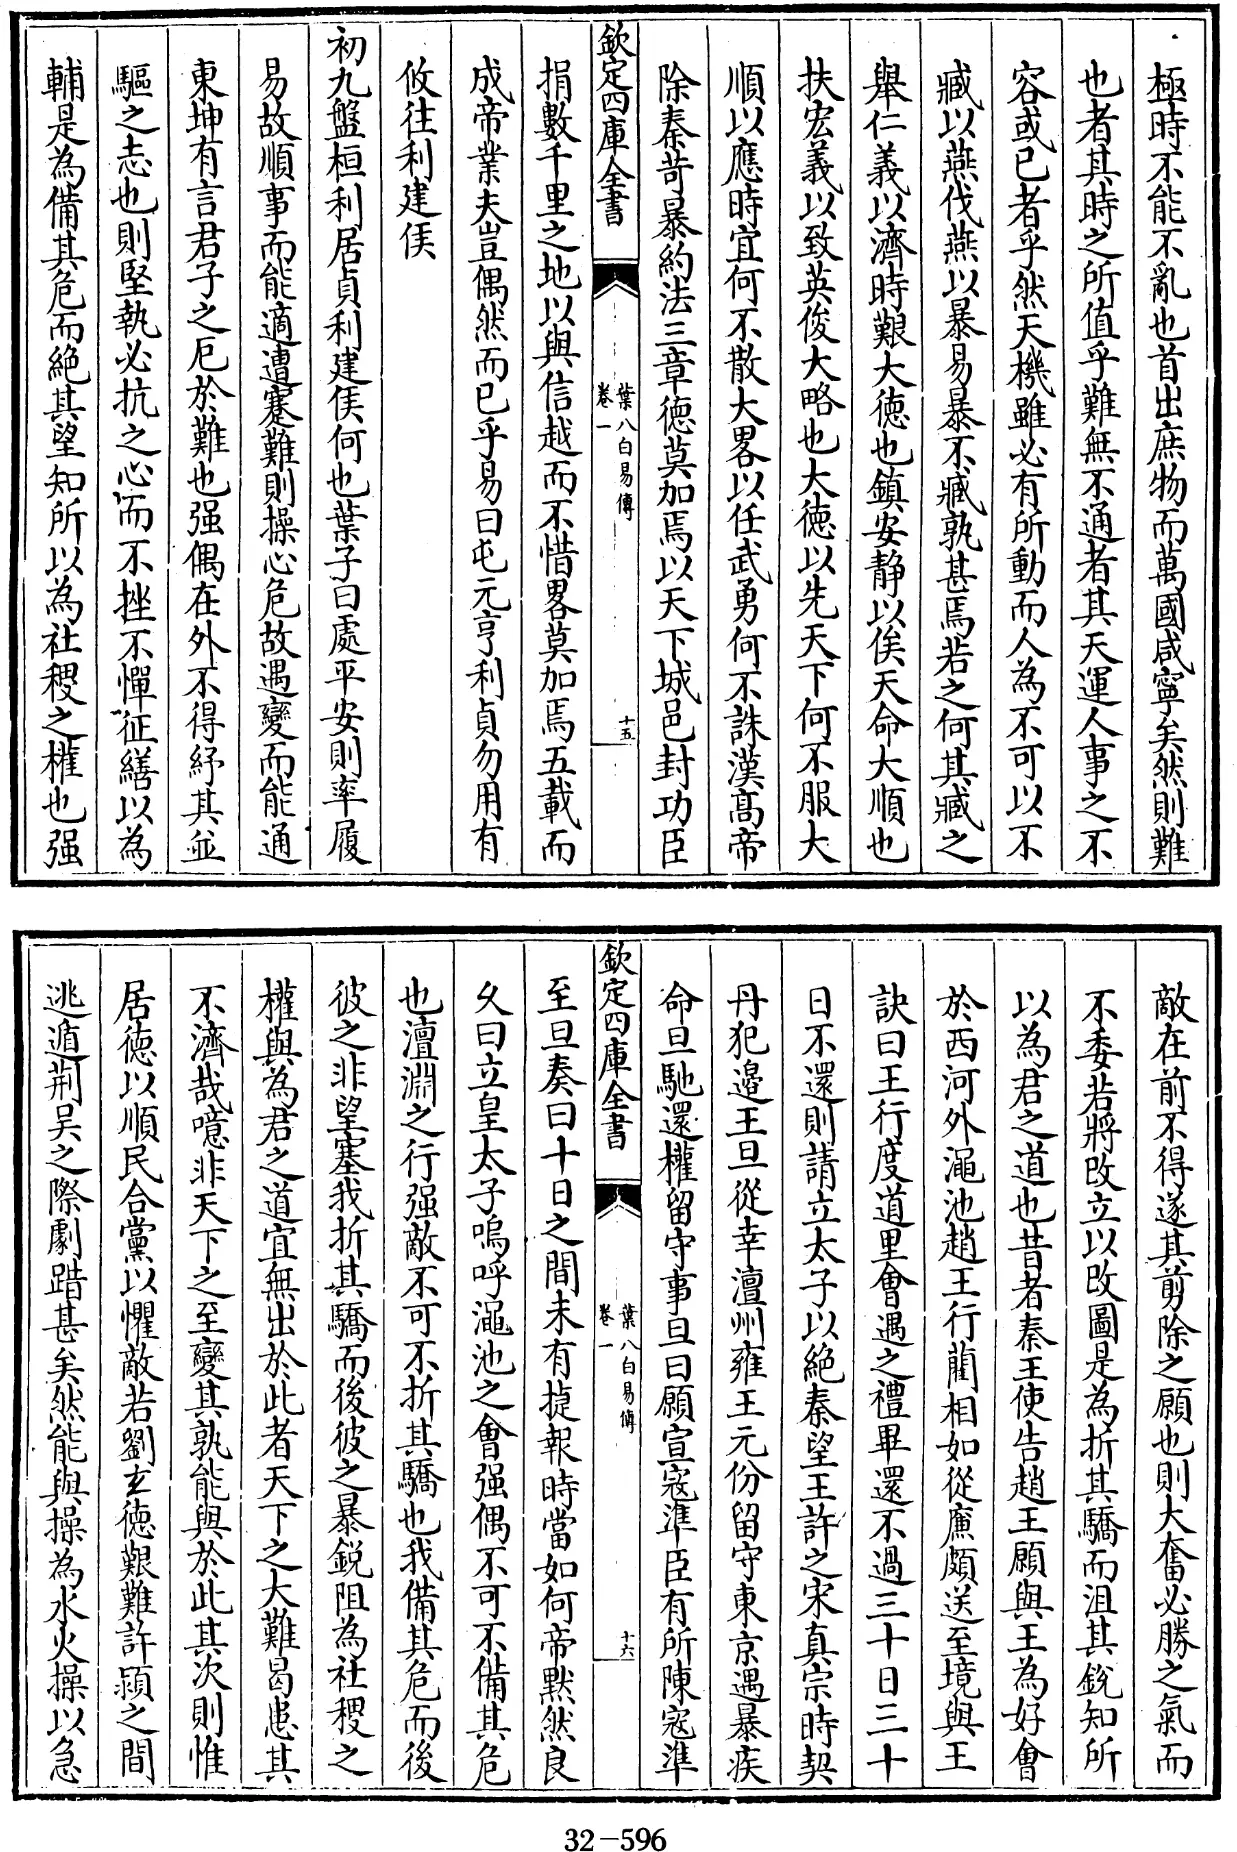 極時不能不亂也首出庶物而萬國咸寧矣然則難
也者其時之所值乎難無不通者其天運人事之不
容或已者乎然天機雖必有所動而人為不可以不
臧以燕伐燕以暴易暴不臧孰甚焉若之何其臧之
舉仁義以濟時艱大德也鎮安靜以俟天命大順也
扶宏義以致英俊大略也大德以先天下何不服大
順以應時宜何不散大畧以任武勇何不誅漢高帝
除秦苛暴約法三章德莫加焉以天下城邑封功臣
欽定四庫全書
葉八白易傳
卷一
十五
捐數千里之地以與信越而不惜畧莫加焉五載而
成帝業夫豈偶然而已乎易曰屯元亨利貞勿用有
攸往利建侯
初九盤桓利居貞利建侯何也葉子曰處平安則率履
易故順事而能適遭蹇難則操心危故遇變而能通
東坤有言君子之厄於難也强偶在外不得紓其並
驅之志也則堅執必抗之心而不挫不憚征繕以為
輔是為備其危而絶其望知所以為社稷之權也强
敵在前不得遂其剪除之願也則大奮必勝之氣而
不委若將改立以改圖是為折其驕而沮其銳知所
以為君之道也昔者秦王使告趙王願與王為好會
於西河外澠池趙王行藺相如從廉頗送至境與王
訣曰王行度道里會遇之禮畢還不過三十日三十
日不還則請立太子以絶秦望王許之宋真宗時契
丹犯邊王旦從幸澶州雍王元份留守東京遇暴疾
命旦馳還權留守事旦曰願宣寇準臣有所陳寇準
欽定四庫全書
葉八白易傳
卷一
十六
至旦奏曰十日之間未有捷報時當如何帝默然良
久曰立皇太子嗚呼澠池之會强偶不可不備其危
也澶淵之行强敵不可不折其驕也我備其危而後
彼之非望塞我折其驕而後彼之暴銳阻為社稷之
權與為君之道宜無出於此者天下之大難曷患其
不濟哉噫非天下之至變其孰能與於此其次則惟
居德以順民合黨以懼敵若劉玄德艱難許潁之間
逃遁荆吴之際劇踖甚矣然能與操為水火操以急
32-596